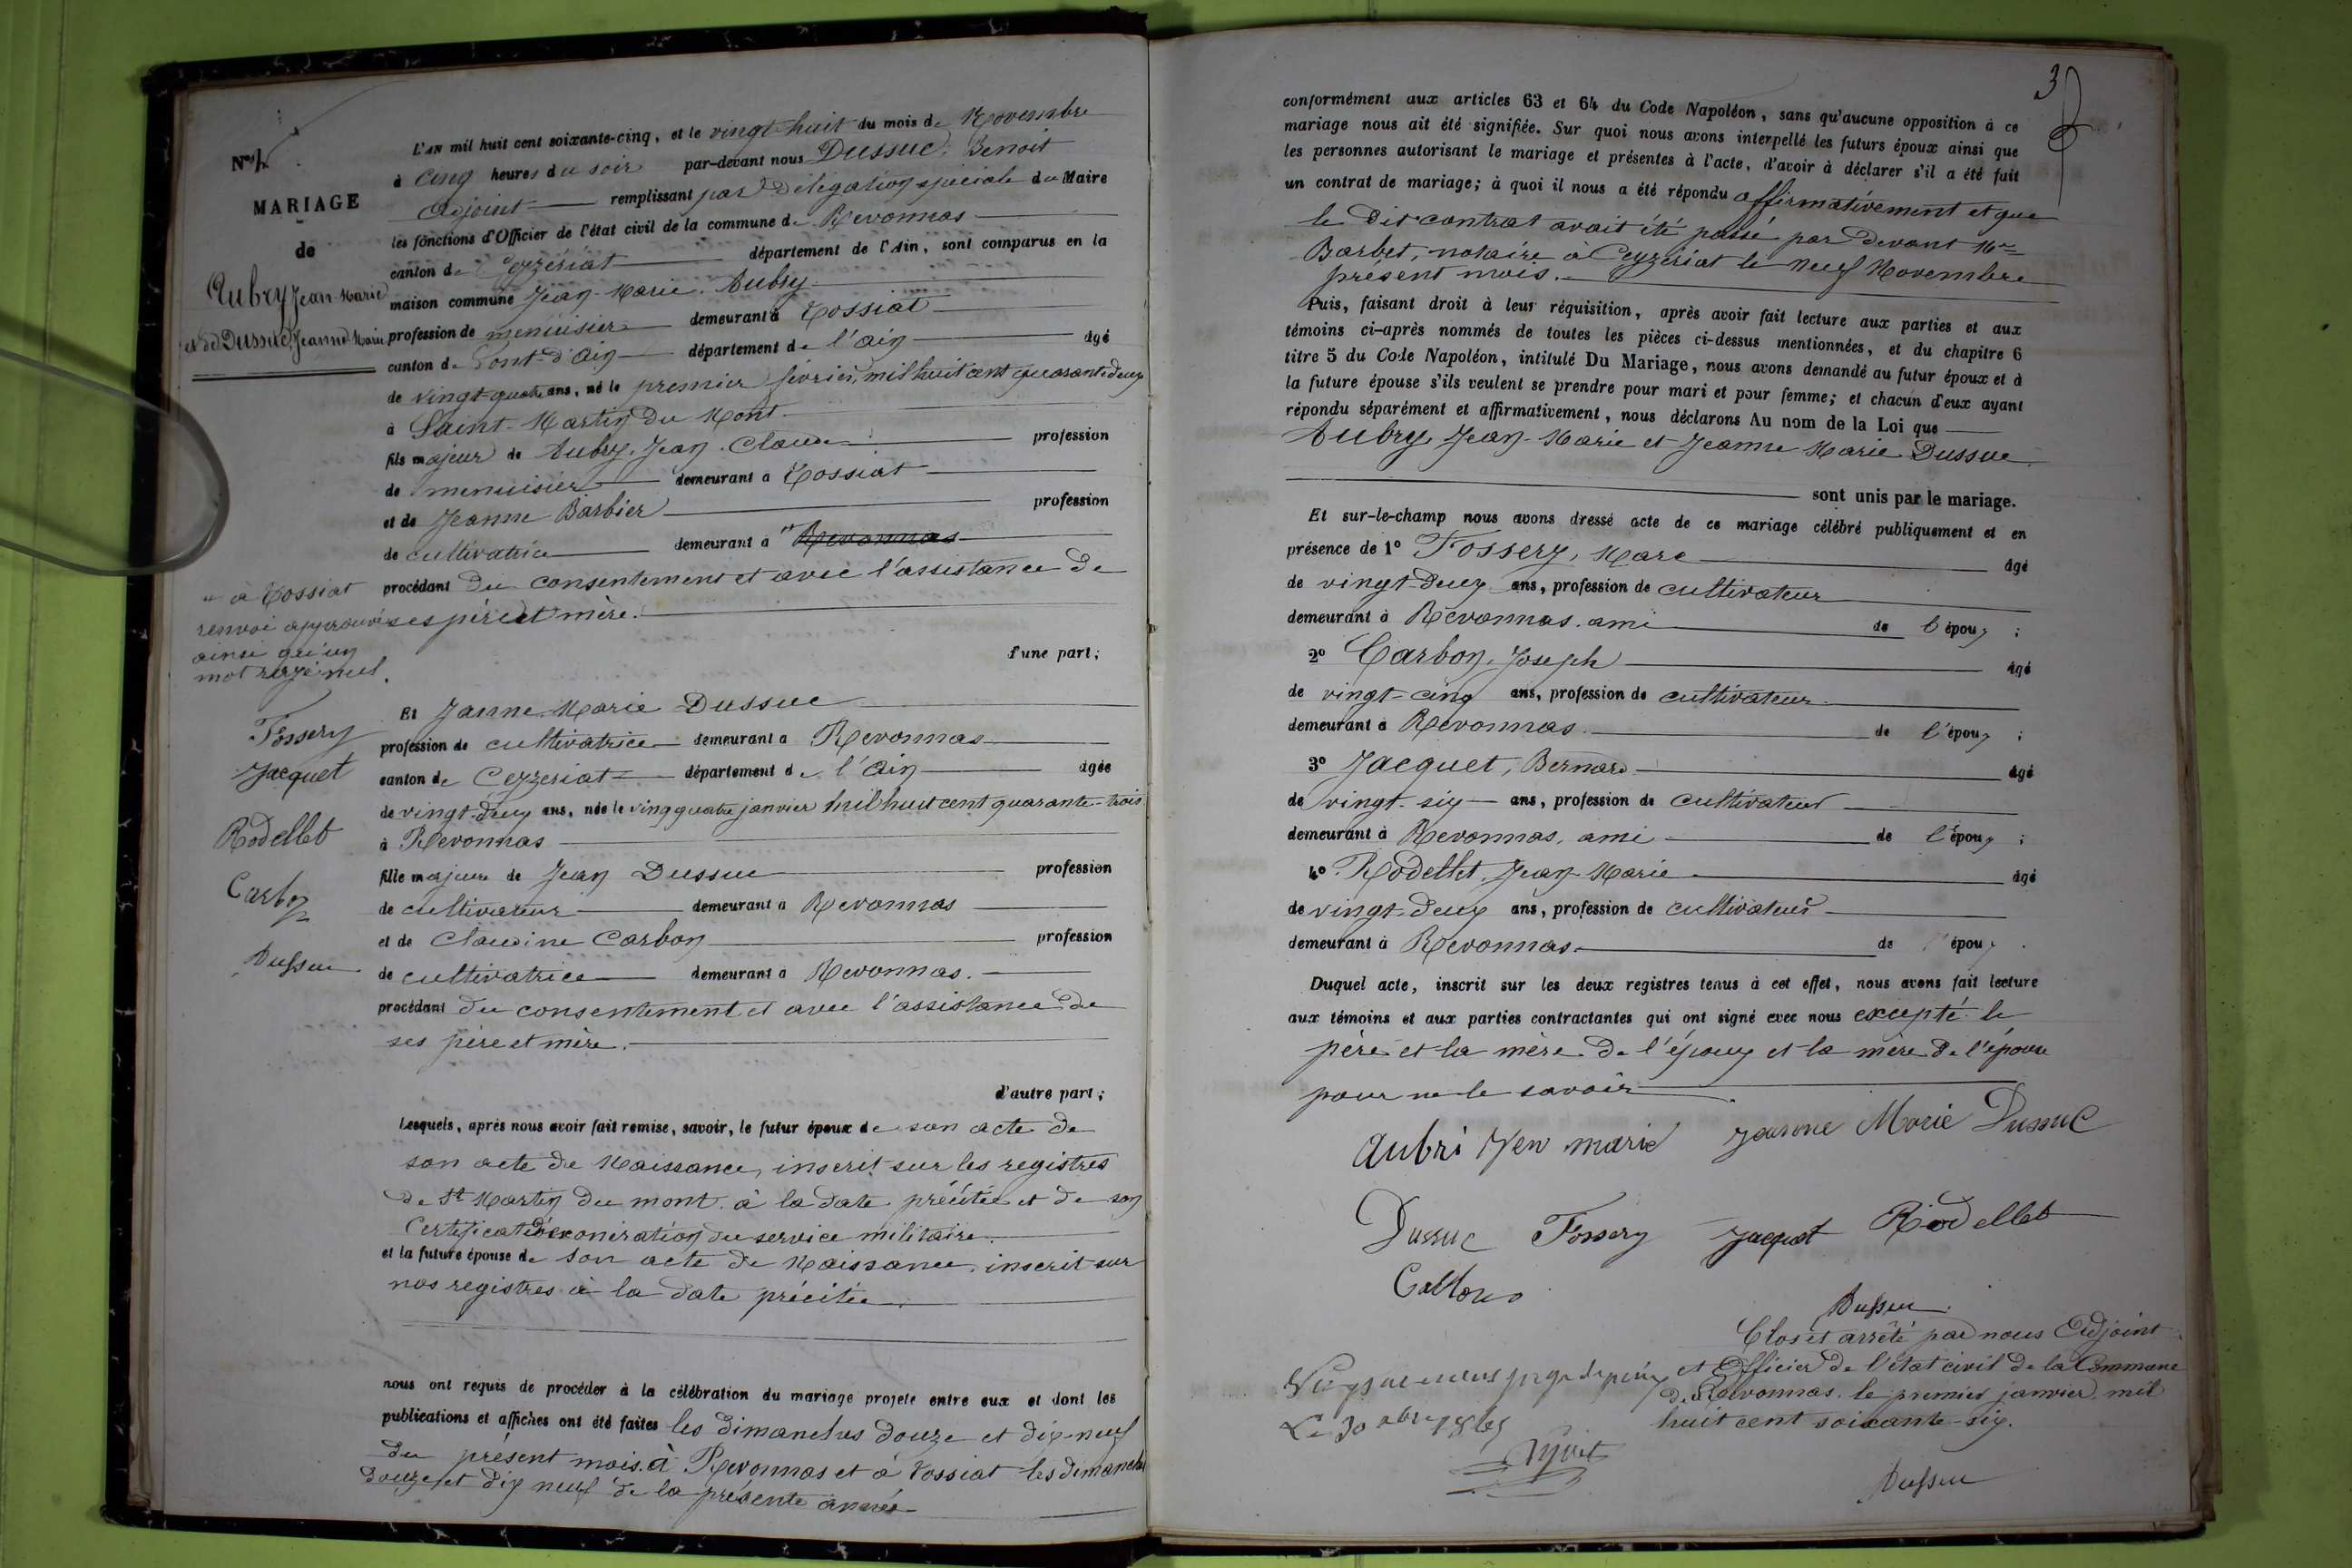 N° 4
MARIAGE
de
Aubry Jean-Marie
et de Dussuc, Jeanne Marie
L'AN mil huit cent soixante-cinq, et le vingt-huit du mois de Novembre
à cinq heures du soir par-devant nous Dussuc, Benoit
adjoint remplissant par délégation spéciale du Maire
les fonctions d'Officier de l'état civil de la commune de Revonnas
canton de Ceyzériat département de l'Ain, sont comparus en la
maison commune Jean-Marie Aubry
profession de menuisier demeurant à Tossiat
canton de Pont-d'Ain département de l'Ain âgé
de vingt-quatre ans, né le premier février, mil huit cent quarante deux
à Saint-Martin du Mont
fils majeur de Aubry, Jean-Claude profession
de menuisier demeurant à Tossiat
et de Jeanne Barbier profession
de cultivatrice demeurant à " Revonnas
" à Tossiat
renvoi approuvé
ainsi qu'un
mot rayé nul.
procédant du consentement et avec l'assistance de
ses père et mère.
d'une part;
Fossery
Jacquet
Rodellet
Carbon
Dussuc
Et Janne-Marie Dussuc
profession de cultivatrice demeurant à Revonnas
canton de Ceyzeriat département de l'Ain âgée
de vingt-deux ans, née le vingt quatre janvier mil huit cent quarante-trois
à Revonnas
fille majeure de Jean Dussuc profession
de cultivateur demeurant à Revonnas
et de Claudine Carbon profession
de cultivatrice demeurant à Revonnas.
procédant du consentement et avec l'assistance de
ses père et mère.
d'autre part;
Lesquels, après nous avoir fait remise, savoir, le futur époux de son acte de
son acte de Naissance, inscrit sur les registres
de St Martin du mont à la date précitée et de son
Certificat d'exonération du service militaire.
et la future épouse de son acte de Naissance, inscrit sur
nos registres à la date précitée.
nous ont requis de procéder à la célébration du mariage projeté entre eux et dont les
publications et affiches ont été faites les dimanches douze et dix-neuf
du présent mois à Revonnas et à Tossiat les dimanches
douze et dix neuf de la présente année
3
conformément aux articles 63 et 64 du Code Napoléon, sans qu'aucune opposition à ce
mariage nous ait été signifiée. Sur quoi nous avons interpellé les futurs époux ainsi que
les personnes autorisant le mariage et présentes à l'acte, d'avoir à déclarer s'il a été fait
un contrat de mariage; à quoi il nous a été répondu affirmativement et que
le dit contrat avait été passé par devant Me
Barbet, notaire à Ceyzériat le neuf Novembre
présent mois.
Puis, faisant droit à leur réquisition, après avoir fait lecture aux parties et aux
témoins ci-après nommés de toutes les pièces ci-dessus mentionnées, et du chapitre 6
titre 5 du Code Napoléon, intitulé Du Mariage, nous avons demandé au futur époux et à
la future épouse s'ils veulent se prendre pour mari et pour femme; et chacun d'eux ayant
répondu séparément et affirmativement, nous déclarons Au nom de la Loi que
Aubry, Jean-Marie et Jeanne Marie Dussuc
sont unis par le mariage.
Et sur-le-champ nous avons dressé acte de ce mariage célébré publiquement et en
présence de 1° Fossery, Marc âgé
de vingt-deux ans, profession de cultivateur
demeurant à Revonnas, ami de l'époux;
2° Carbon, Joseph âgé
de vingt-cinq ans, profession de cultivateur
demeurant à Revonnas de l'époux;
3° Jacquet, Bernard âgé
de vingt-six ans, profession de cultivateur
demeurant à Revonnas, ami de l'époux;
4° Rodellet, Jean-Marie âgé
de vingt-deux ans, profession de cultivateur
demeurant à Revonnas de l'époux.
Duquel acte, inscrit sur les deux registres tenus à cet effet, nous avons fait lecture
aux témoins et aux parties contractantes qui ont signé avec nous excepté le
père et la mère de l'époux et la mère de l'épouse
pour ne le savoir.
Aubri Jen marie Jeanne Marie Dussuc
Dussuc Fossery Jacquet Rodellet
Carbon
Dussuc
Clos et arrêté par nous Adjoint
et Officier de l'état civil de la Commune
de Revonnas le premier janvier mil
huit cent soixante-six.
Dussuc